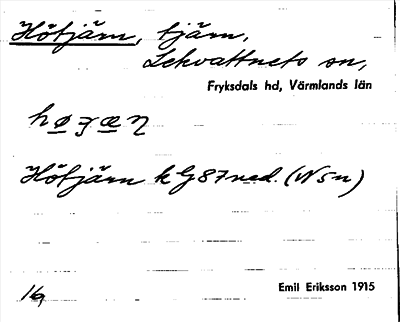 Hötjärn, tjärn,
Lekvattnets sn,
Fryksdals hd, Värmlands län
Hötjärn k G87ned. (N5n)
16,
Emil Eriksson 1915